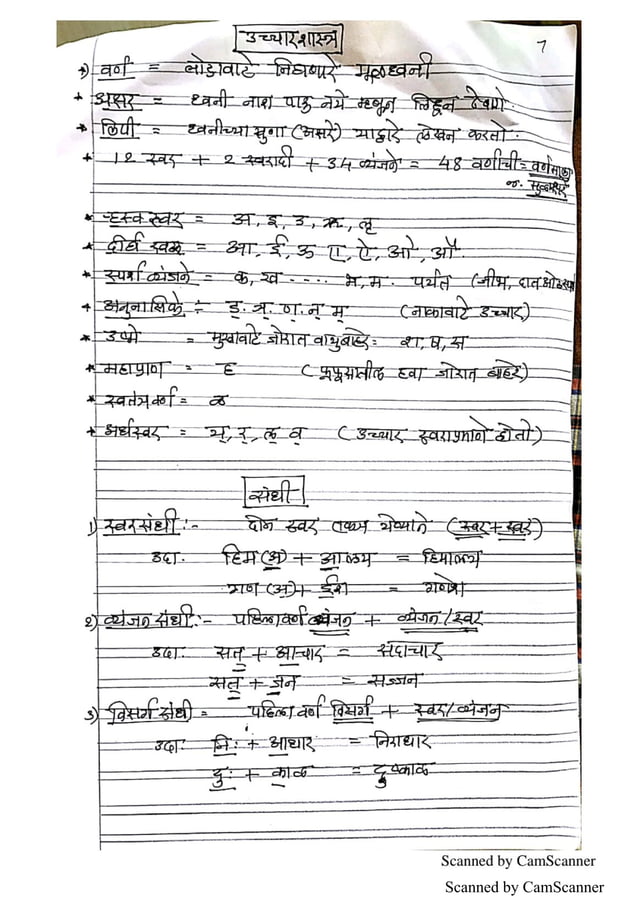 उच्चारशास्त्र
7
→) वर्ण = तोंडावाटे निघणारे मूळध्वनी
* अक्षर = ध्वनी नाश पावु नये म्हणून लिहून ठेवणे.
* लिपी = ध्वनीच्या खुणा (अक्षरे) याद्वारे लेखन करतो.
* 12 स्वर + 2 स्वरादी + 34 व्यंजने = 48 वर्णाची = वर्णमाला
मुळाक्षर
* ऱ्हस्व स्वर = अ, इ, उ, ऋ, लृ
* दीर्घ स्वर = आ, ई, ऊ ए, ऐ, ओ, औ.
* स्पर्श व्यंजने = क, ख .... भ, म. पर्यंत (जीभ, दात ओठ स्पर्श
+ अनुनासिके ÷ ङ्. ञ्. ण्. न्. म् (नाकावाटे उच्चार)
* उष्मे = मुखावाटे जोरात वायुबाहेर: श, ष, स
* महाप्राण = ह (फुफ्फुसातील हवा जोरात बाहेर)
* स्वतंत्रवर्ण = ळ
* अर्धस्वर = य्, र्, ल्, व् (उच्चार स्वराप्रमाणे होतो)
संधी
1) स्वरसंधी :- दोन स्वर एकत्र येण्याने (स्वर + स्वर)
उदा: हिम (अ) + आलय = हिमालय
गण (अ) + ईश = गणेश
२) व्यंजन संधी :- पहिला वर्ण व्यंजन + व्यंजन/स्वर
उदा: सत् + आचार = सदाचार
सत् + जन = सज्जन
3) विसर्ग संधी = पहिला वर्ण विसर्ग + स्वर/व्यंजन
उदा: नि: + आधार = निराधार
दु: + काळ = दुष्काळ
Scanned by CamScanner
Scanned by CamScanner